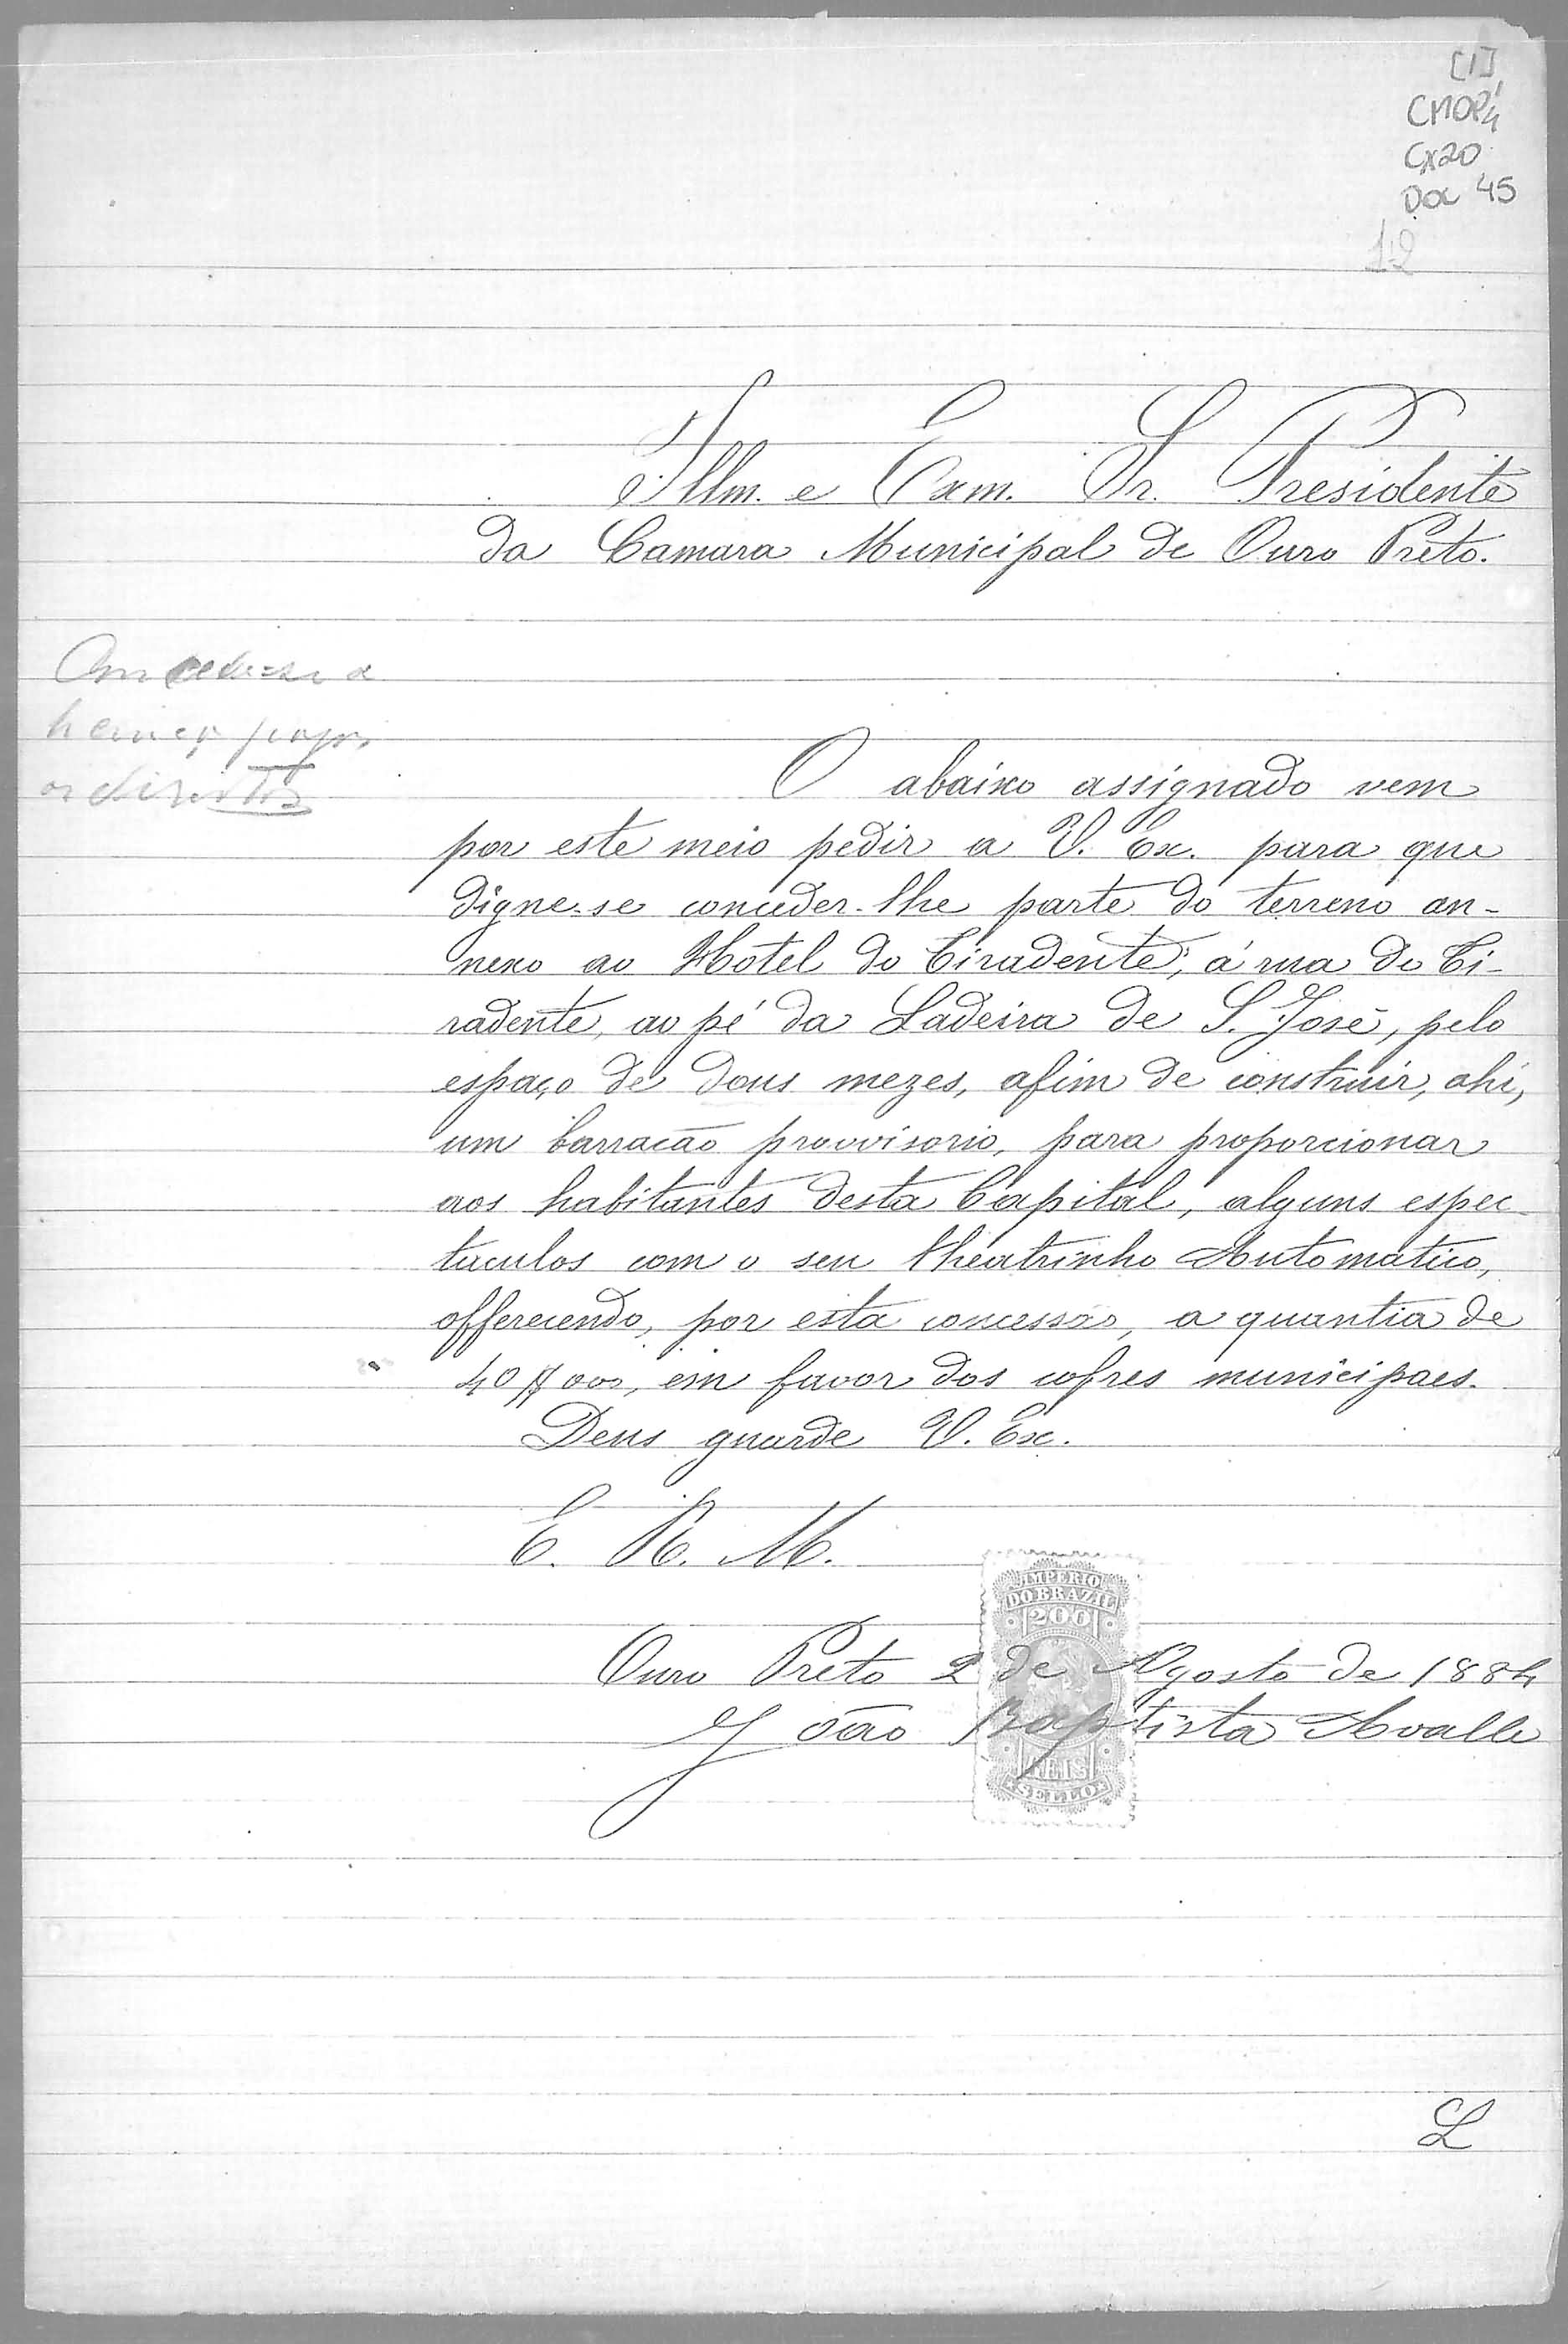 [1]
CMOP
Cx20
DOC 45
12
Illm. e Exm. Sr. Presidente
da Camara Municipal de Ouro Preto.
Concede-se a
licença pagos
os direitos
O abaixo assignado vem
por este meio pedir a V. Ex. para que
digne-se conceder-lhe parte do terreno an-
nexo ao Hotel do Tiradente, á rua do Ti-
radente, ao pé da Ladeira de S. José, pelo
espaço de dous mezes, afim de construir, ahi,
um barracão provvisorio, para proporcionar
aos habitantes desta Capital, alguns espec-
taculos com o seu theatrinho Automatico,
offerecendo, por esta concessão, a quantia de
40$000, em favor dos cofres municipaes.
Deus guarde V. Ex.
E. R. M.
IMPERIO
DO BRAZIL
200
Ouro Preto 2 de Agosto de 1884
João Baptista Avalle
REIS
SELLO